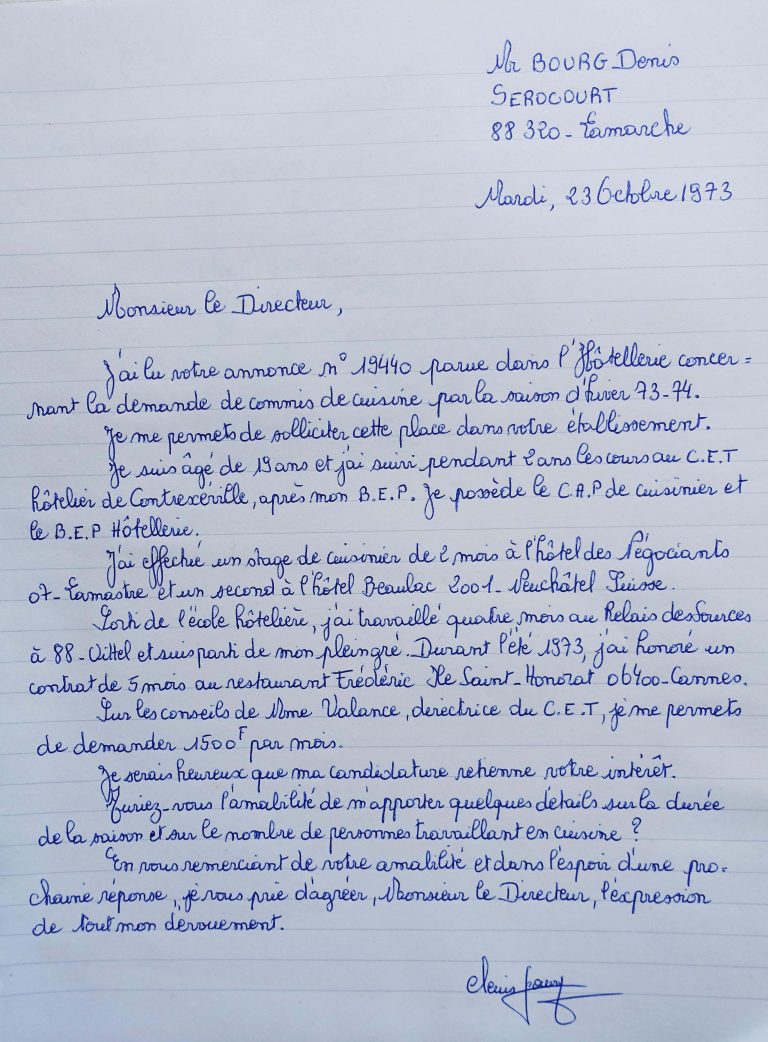 Mr BOURG Denis
SEROCOURT
88 320 - Lamarche
Mardi, 23 Octobre 1973
Monsieur le Directeur,
J'ai lu votre annonce n° 19440 parue dans l'Hôtellerie concer=
nant la demande de commis de cuisine par la saison d'hiver 73-74.
Je me permets de solliciter cette place dans votre établissement.
Je suis âgé de 19 ans et j'ai suivi pendant 2 ans les cours au C.E.T
hôtelier de Contrexéville, après mon B.E.P. Je possède le C.A.P de cuisinier et
le B.E.P Hôtellerie.
J'ai effectué un stage de cuisinier de 2 mois à l'hôtel des Négociants
07- Lamastre et un second à l'hôtel Beaulac 2001- Neuchâtel Suisse.
Sorti de l'école hôtelière, j'ai travaillé quatre mois au Relais des Sources
à 88 - Vittel et suis parti de mon plein gré. Durant l'été 1973, j'ai honoré un
contrat de 5 mois au restaurant Frédéric Ile Saint-Honorat 06400-Cannes.
Sur les conseils de Mme Valance, derectrice du C.E.T, je me permets
de demander 1500F par mois.
Je serais heureux que ma candidature retienne votre intérêt.
Auriez-vous l'amabilité de m'apporter quelques détails sur la durée
de la saison et sur le nombre de personnes travaillant en cuisine ?
En vous remerciant de votre amabilité et dans l'espoir d'une pro=
chaine réponse, je vous prie d'agréer, Monsieur le Directeur, l'expression
de tout mon dévouement.
denis Bourg